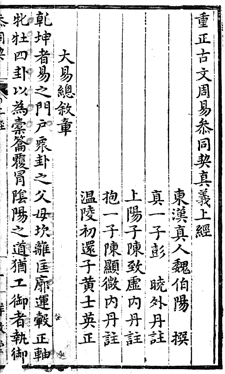 重正古文周易叅同契真義上經
東漢真人魏伯陽 撰
真一子彭　曉外丹註
上陽子陳致虛内丹註
抱一子陳顯微内丹註
温陵初還子黄士英正
大易總敘章
乾坤者易之門户衆卦之父母坎離匡廓運轂正軸
牝牡四卦以為橐籥覆冐陰陽之道猶工御者執御